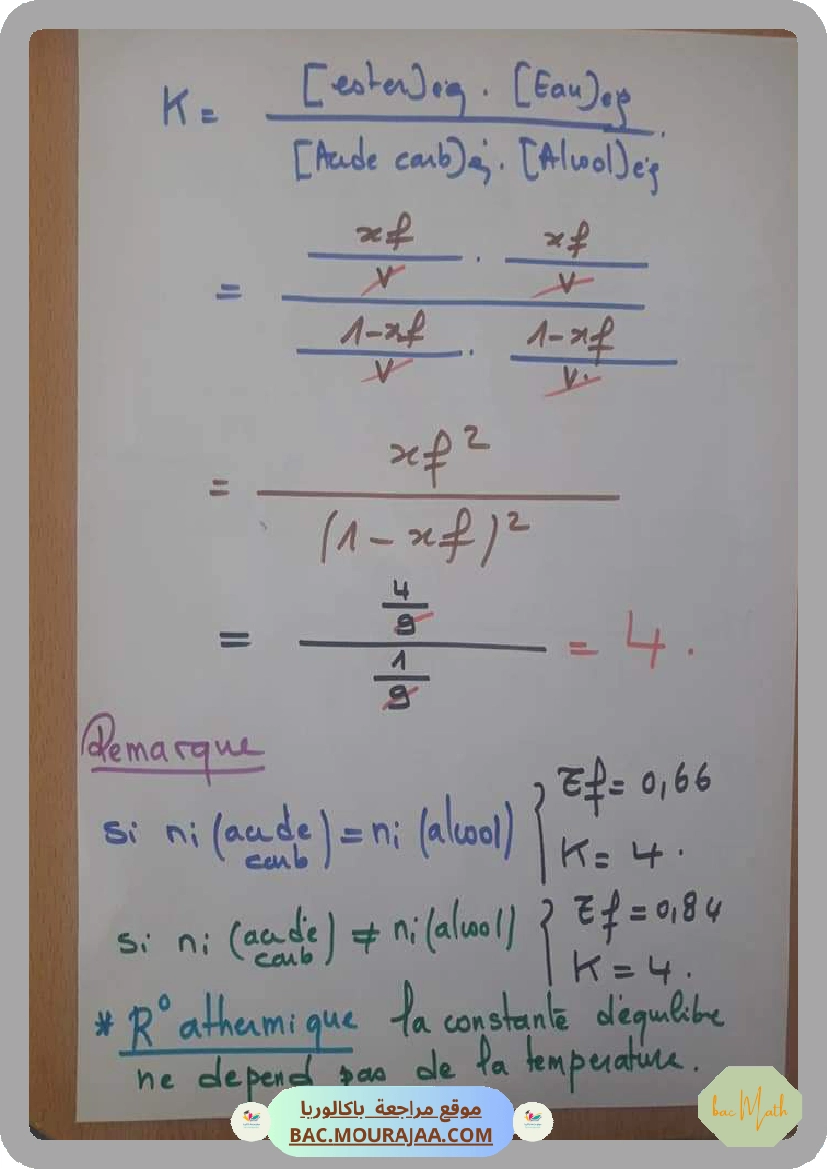 K = [ester]éq . [Eau]éq / [Acide carb]éq . [Alcool]éq
= xf/V . xf/V / 1-xf/V . 1-xf/V
= xf² / (1-xf)²
= 4/9 / 1/9 = 4.
Remarque
si ni (acide carb) = ni (alcool) } τf = 0,66
K = 4.
si ni (acide carb) ≠ ni (alcool) } τf = 0,84
K = 4.
* R° athermique la constante d'équilibre
ne depend pas de la temperature.
موقع مراجعة باكالوريا
BAC.MOURAJAA.COM
bac Math